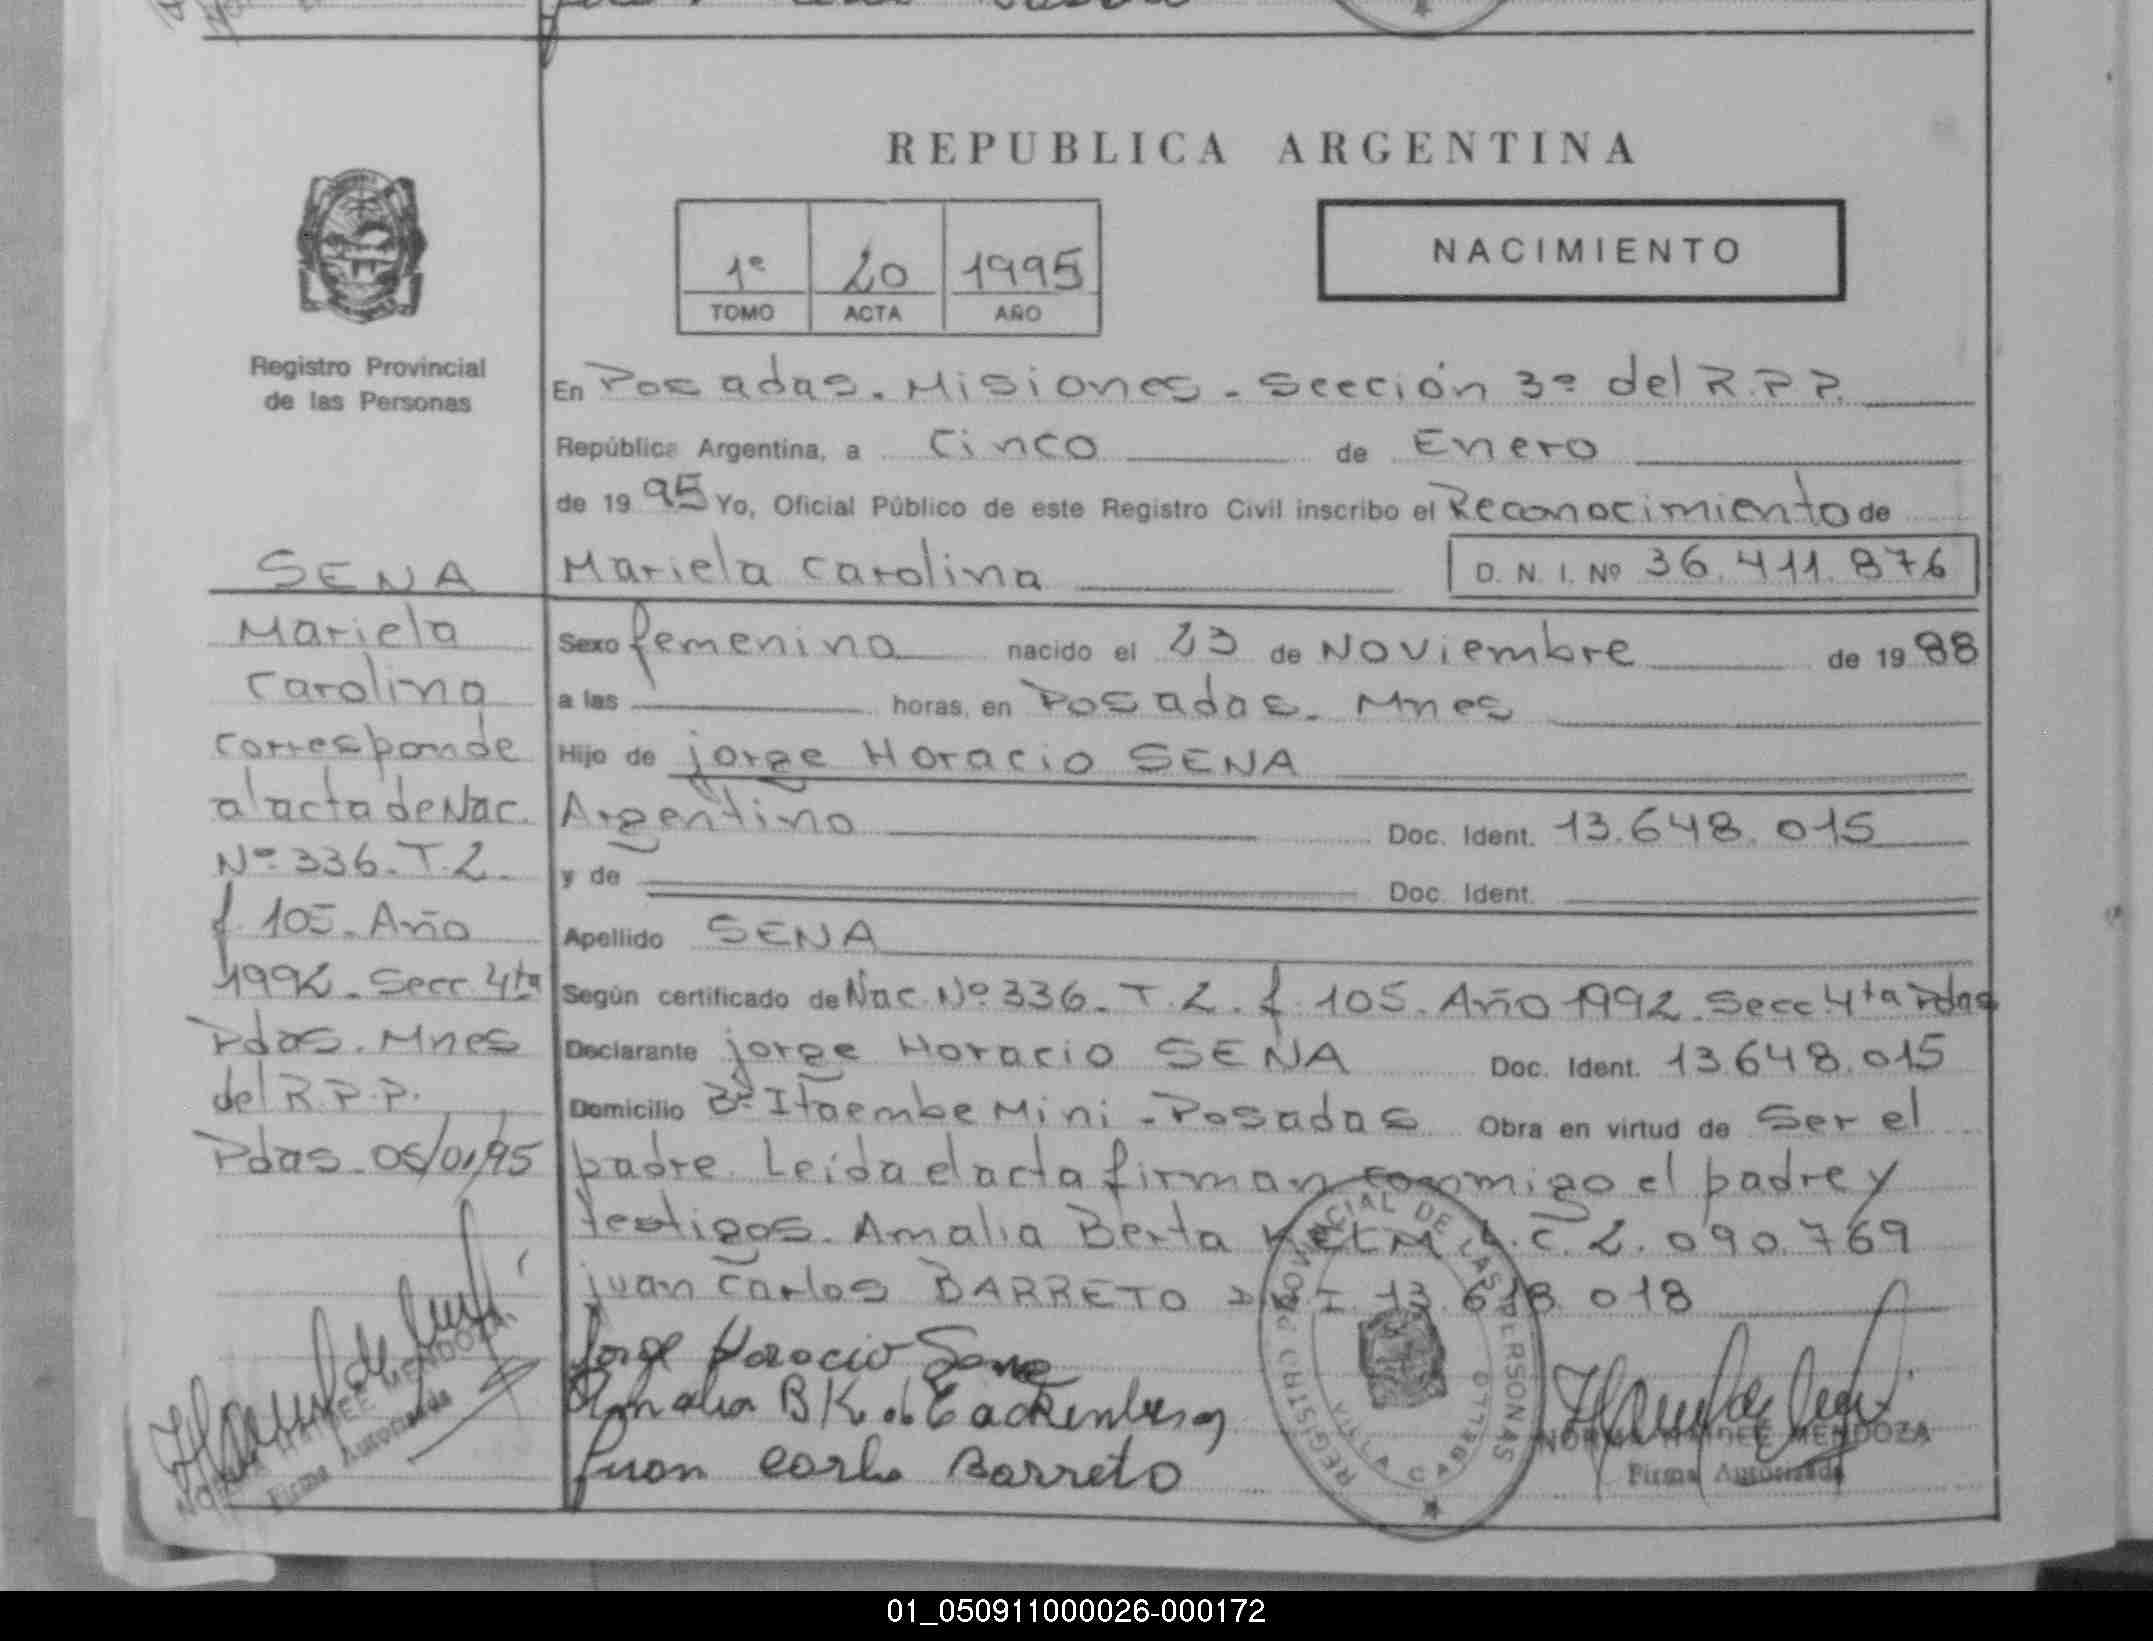 REPUBLICA ARGENTINA
NACIMIENTO
1º 20 1995
TOMO ACTA AÑO
Registro Provincial
de las Personas
En Posadas. Misiones - Sección 3º del R.P.P.
República Argentina, a Cinco de Enero
de 1995 Yo, Oficial Público de este Registro Civil inscribo el Reconocimiento de
Mariela Carolina D. N. I. Nº 36.411.876
Sexo femenino nacido el 23 de Noviembre de 1988
a las horas, en Posadas. Mnes
Hijo de Jorge Horacio SENA
Argentino Doc. Ident. 13.648.015
y de Doc. Ident.
Apellido SENA
Según certificado de Nac. Nº 336. T. 2. f. 105. Año 1992. Secc. 4ta Pdas
Declarante Jorge Horacio SENA Doc. Ident. 13.648.015
Domicilio Bº Itaembe Mini - Posadas Obra en virtud de Ser el
padre. Leída el acta firman conmigo el padre y
testigos. Amalia Berta L.C. 2.090.769
Juan Carlos BARRETO D.N.I. 13.618.018
Jorge Horacio Sena
Amalia B K. de
Juan Carlos Barreto
SENA
Mariela
Carolina
corresponde
al acta de Nac.
Nº 336. T. 2.
f. 105. Año
1992. Secc. 4ta
Pdas. Mnes
del R.P.P.
Pdas. 05/01/95
NORMA HAIDEE MENDOZA
Firma Autorizada
REGISTRO PROVINCIAL DE LAS PERSONAS
VILLA CABELLO
NORMA HAIDEE MENDOZA
Firma Autorizada
01_050911000026-000172